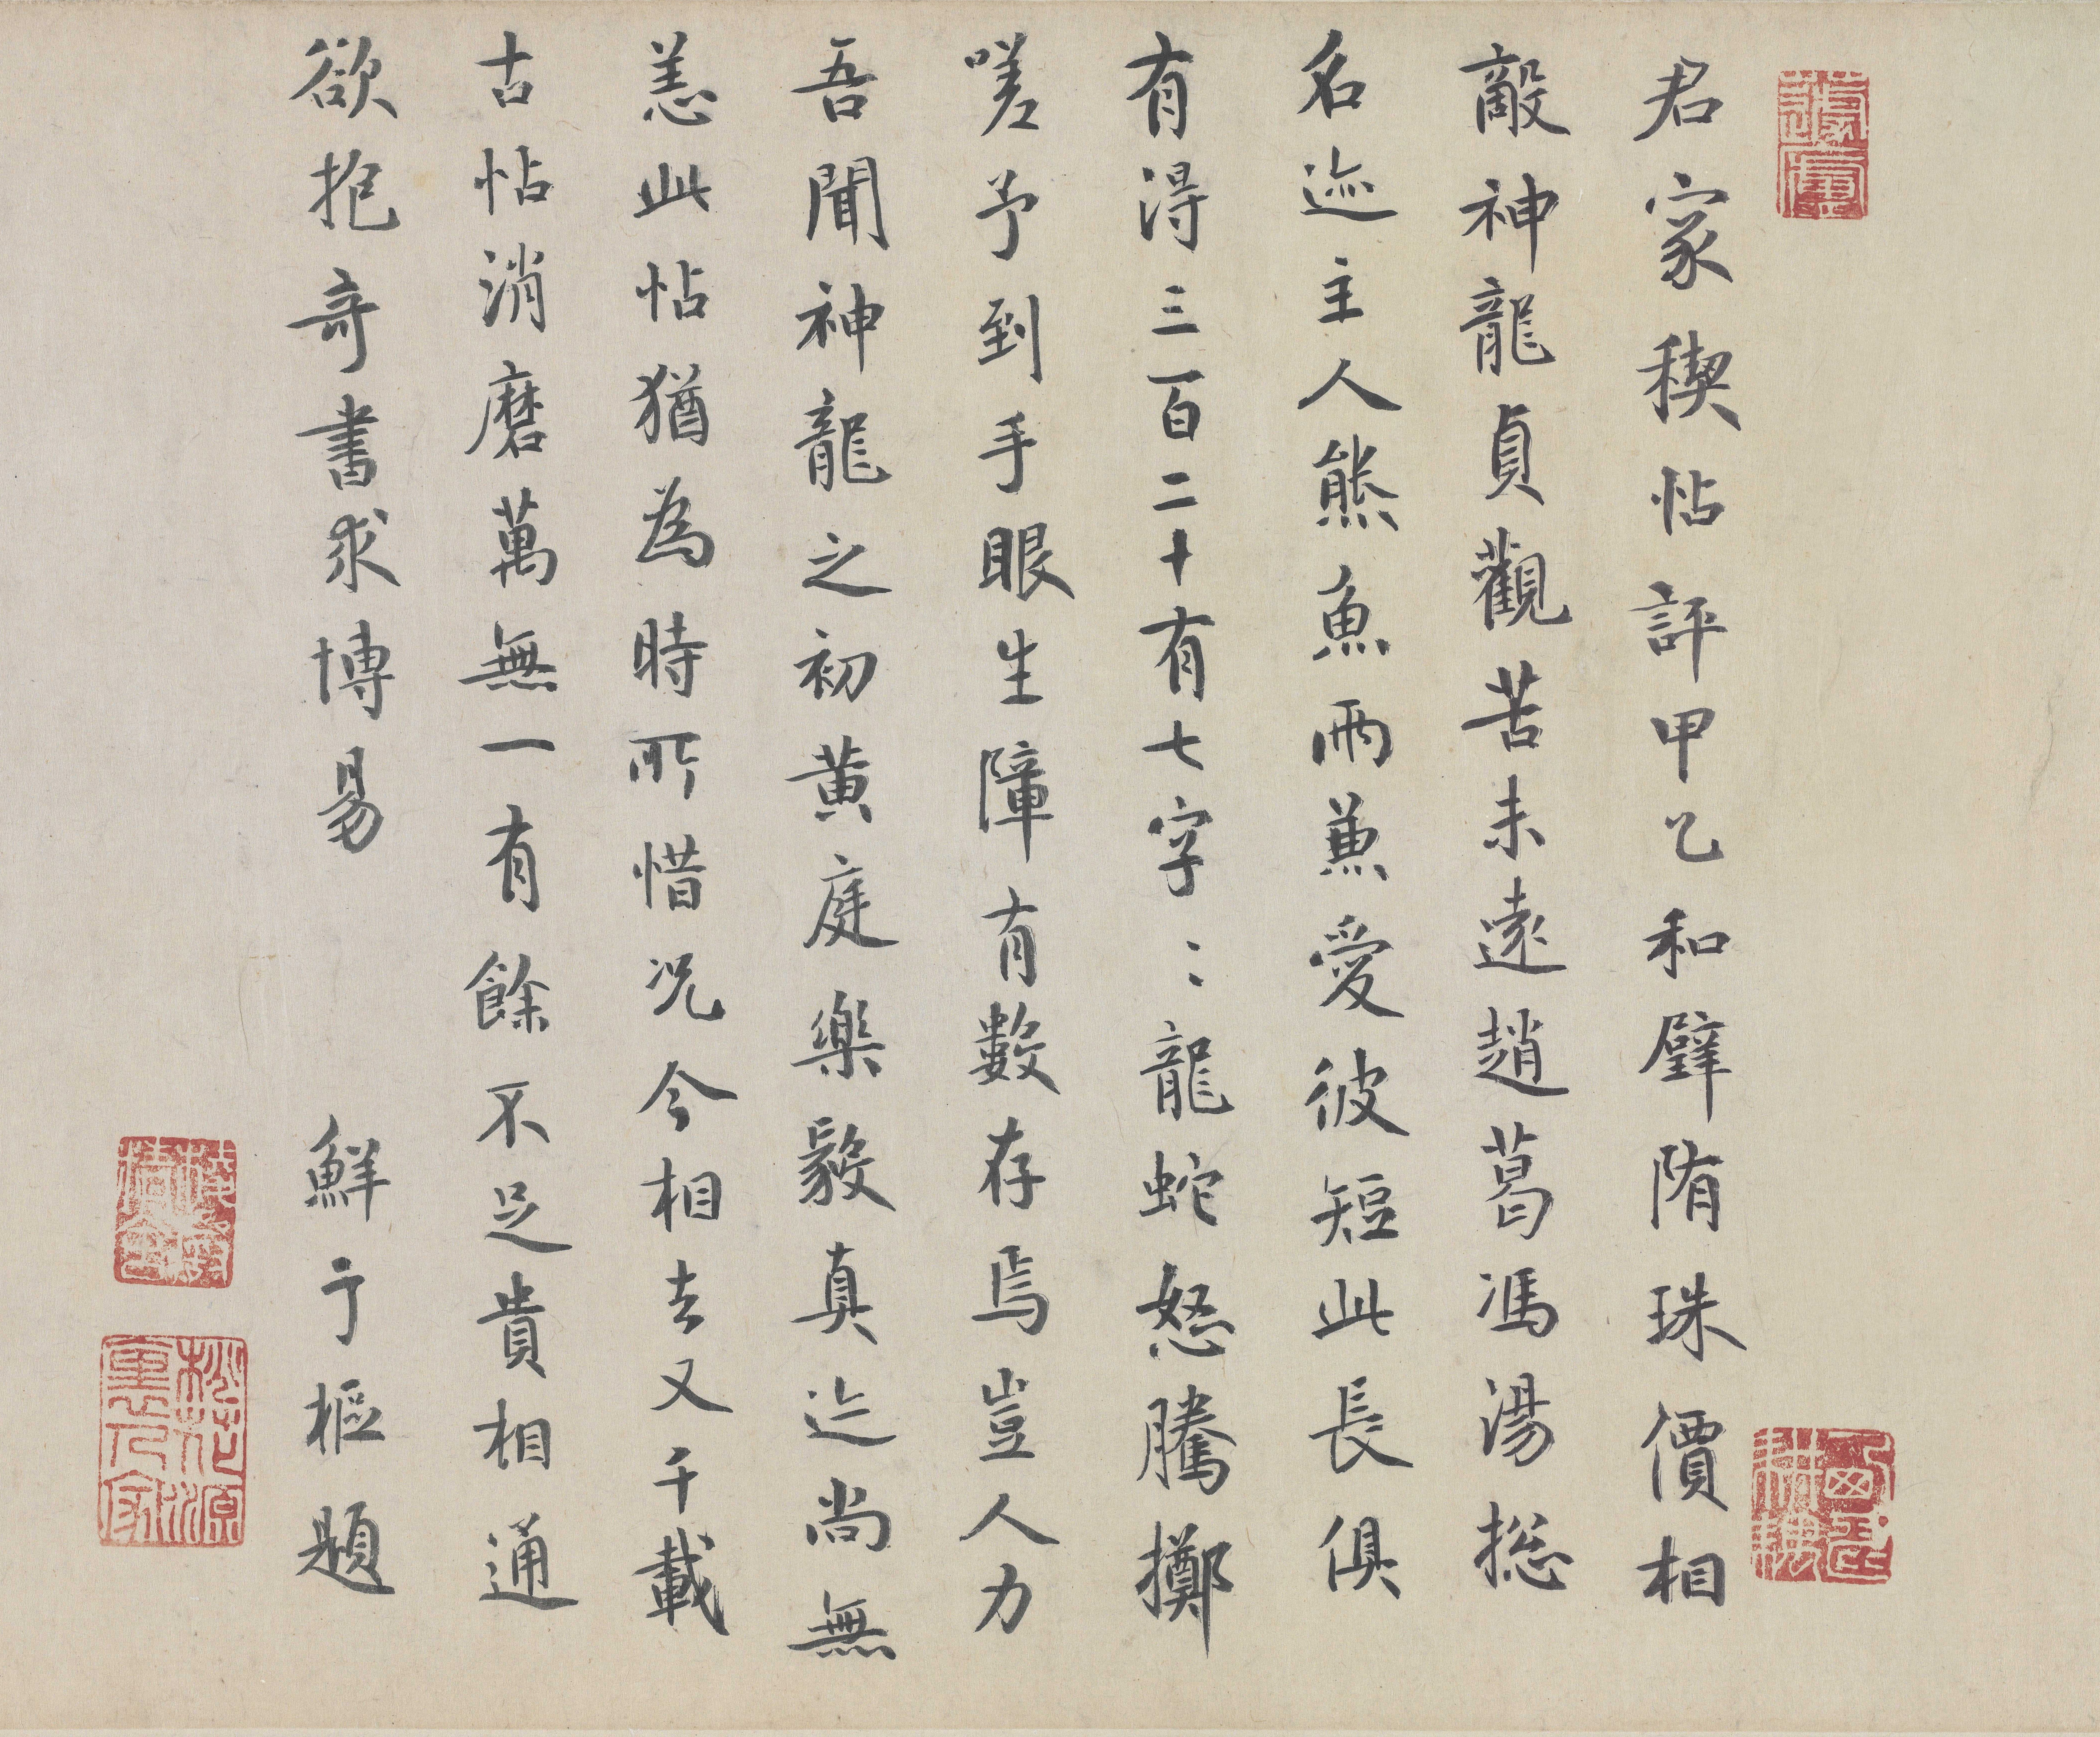 君家稧帖評甲乙和璧隋珠價相
敵神龍貞觀苦未遠趙葛馮湯揔
名迹主人熊魚兩兼愛彼短此長俱
有得三百二十有七字〻龍蛇怒騰擲
嗟予到手眼生障有數存焉豈人力
吾聞神龍之初黄庭樂毅真迹尚無
恙此帖猶為時所惜况今相去又千載
古帖消磨萬無一有餘不足貴相通
欲抱奇書求博易
鮮于樞題